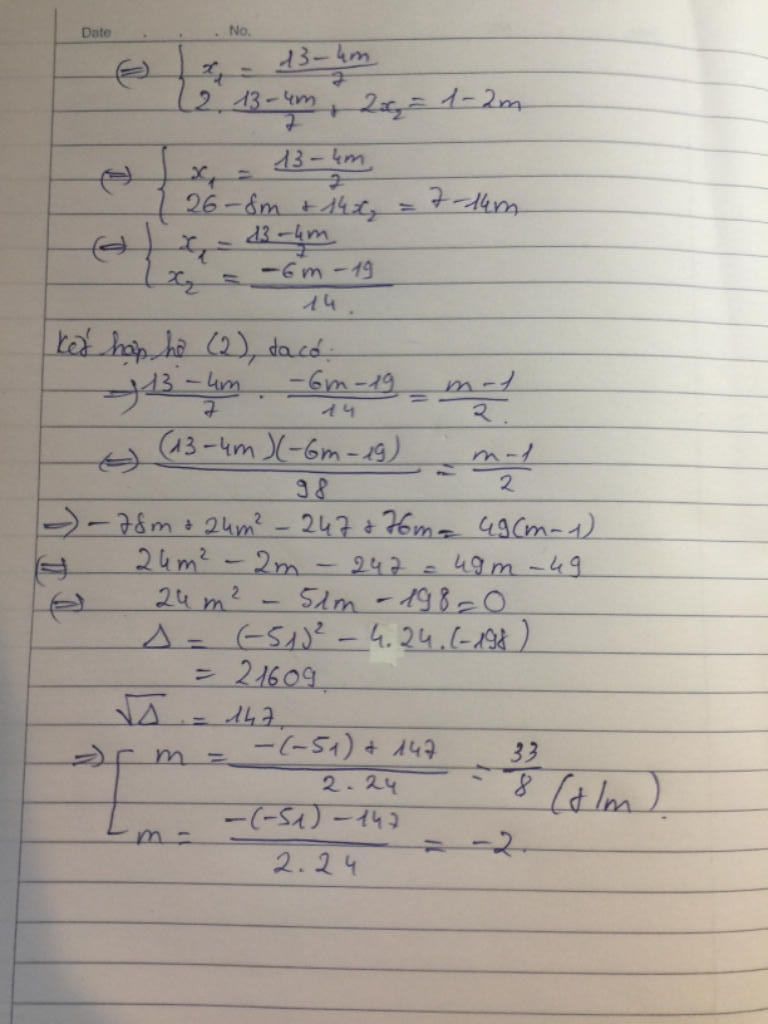 Date . . . No.
⇔ { x₁ = (13 - 4m)/7
2 . (13 - 4m)/7 + 2x₂ = 1 - 2m
⇔ { x₁ = (13 - 4m)/7
26 - 8m + 14x₂ = 7 - 14m
⇔ { x₁ = (13 - 4m)/7
x₂ = (-6m - 19)/14.
Kết hợp hệ (2), ta có:
→ (13 - 4m)/7 . (-6m - 19)/14 = (m - 1)/2.
⇔ (13 - 4m)(-6m - 19)/98 = (m - 1)/2
⇒ - 78m + 24m² - 247 + 76m = 49(m - 1)
⇔ 24m² - 2m - 247 = 49m - 49
⇔ 24m² - 51m - 198 = 0
Δ = (-51)² - 4.24.(-198)
= 21609
√Δ = 147.
⇒ [ m = (-(-51) + 147)/(2.24) = 33/8 (t/m).
m = (-(-51) - 147)/(2.24) = -2.